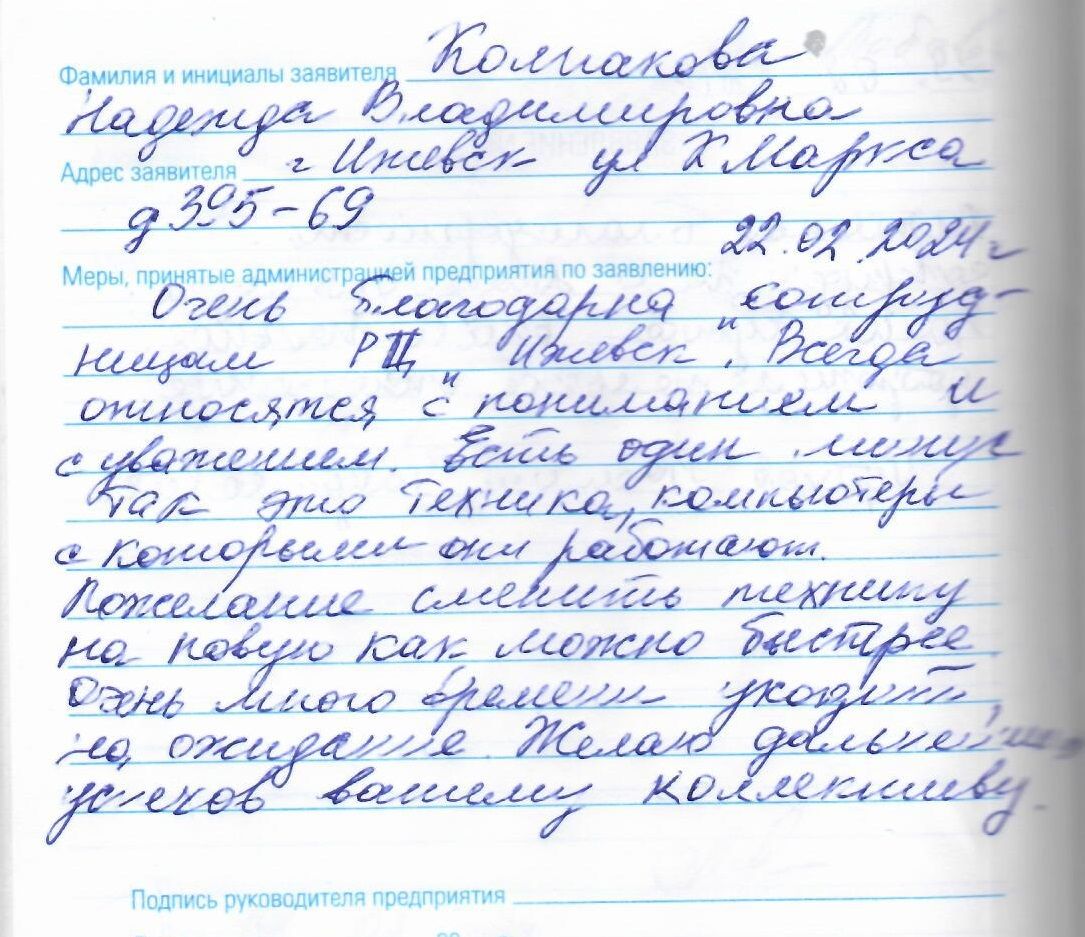 Фамилия и инициалы заявителя Колпакова
Надежда Владимировна
Адрес заявителя г Ижевск ул К Маркса
д 395-69
22.02.2024г
Меры, принятые администрацией предприятия по заявлению:
Очень благодарна сотруд-
ницам РЦ "Ижевск". Всегда
относятся с пониманием и
с уважением. Есть один минус
так это техника, компьютеры
с которыми они работают.
Пожелание сменить технику
на новую как можно быстрее
Очень много времени уходит
на ожидание. Желаю дальнейших
успехов вашему коллективу.
Подпись руководителя предприятия